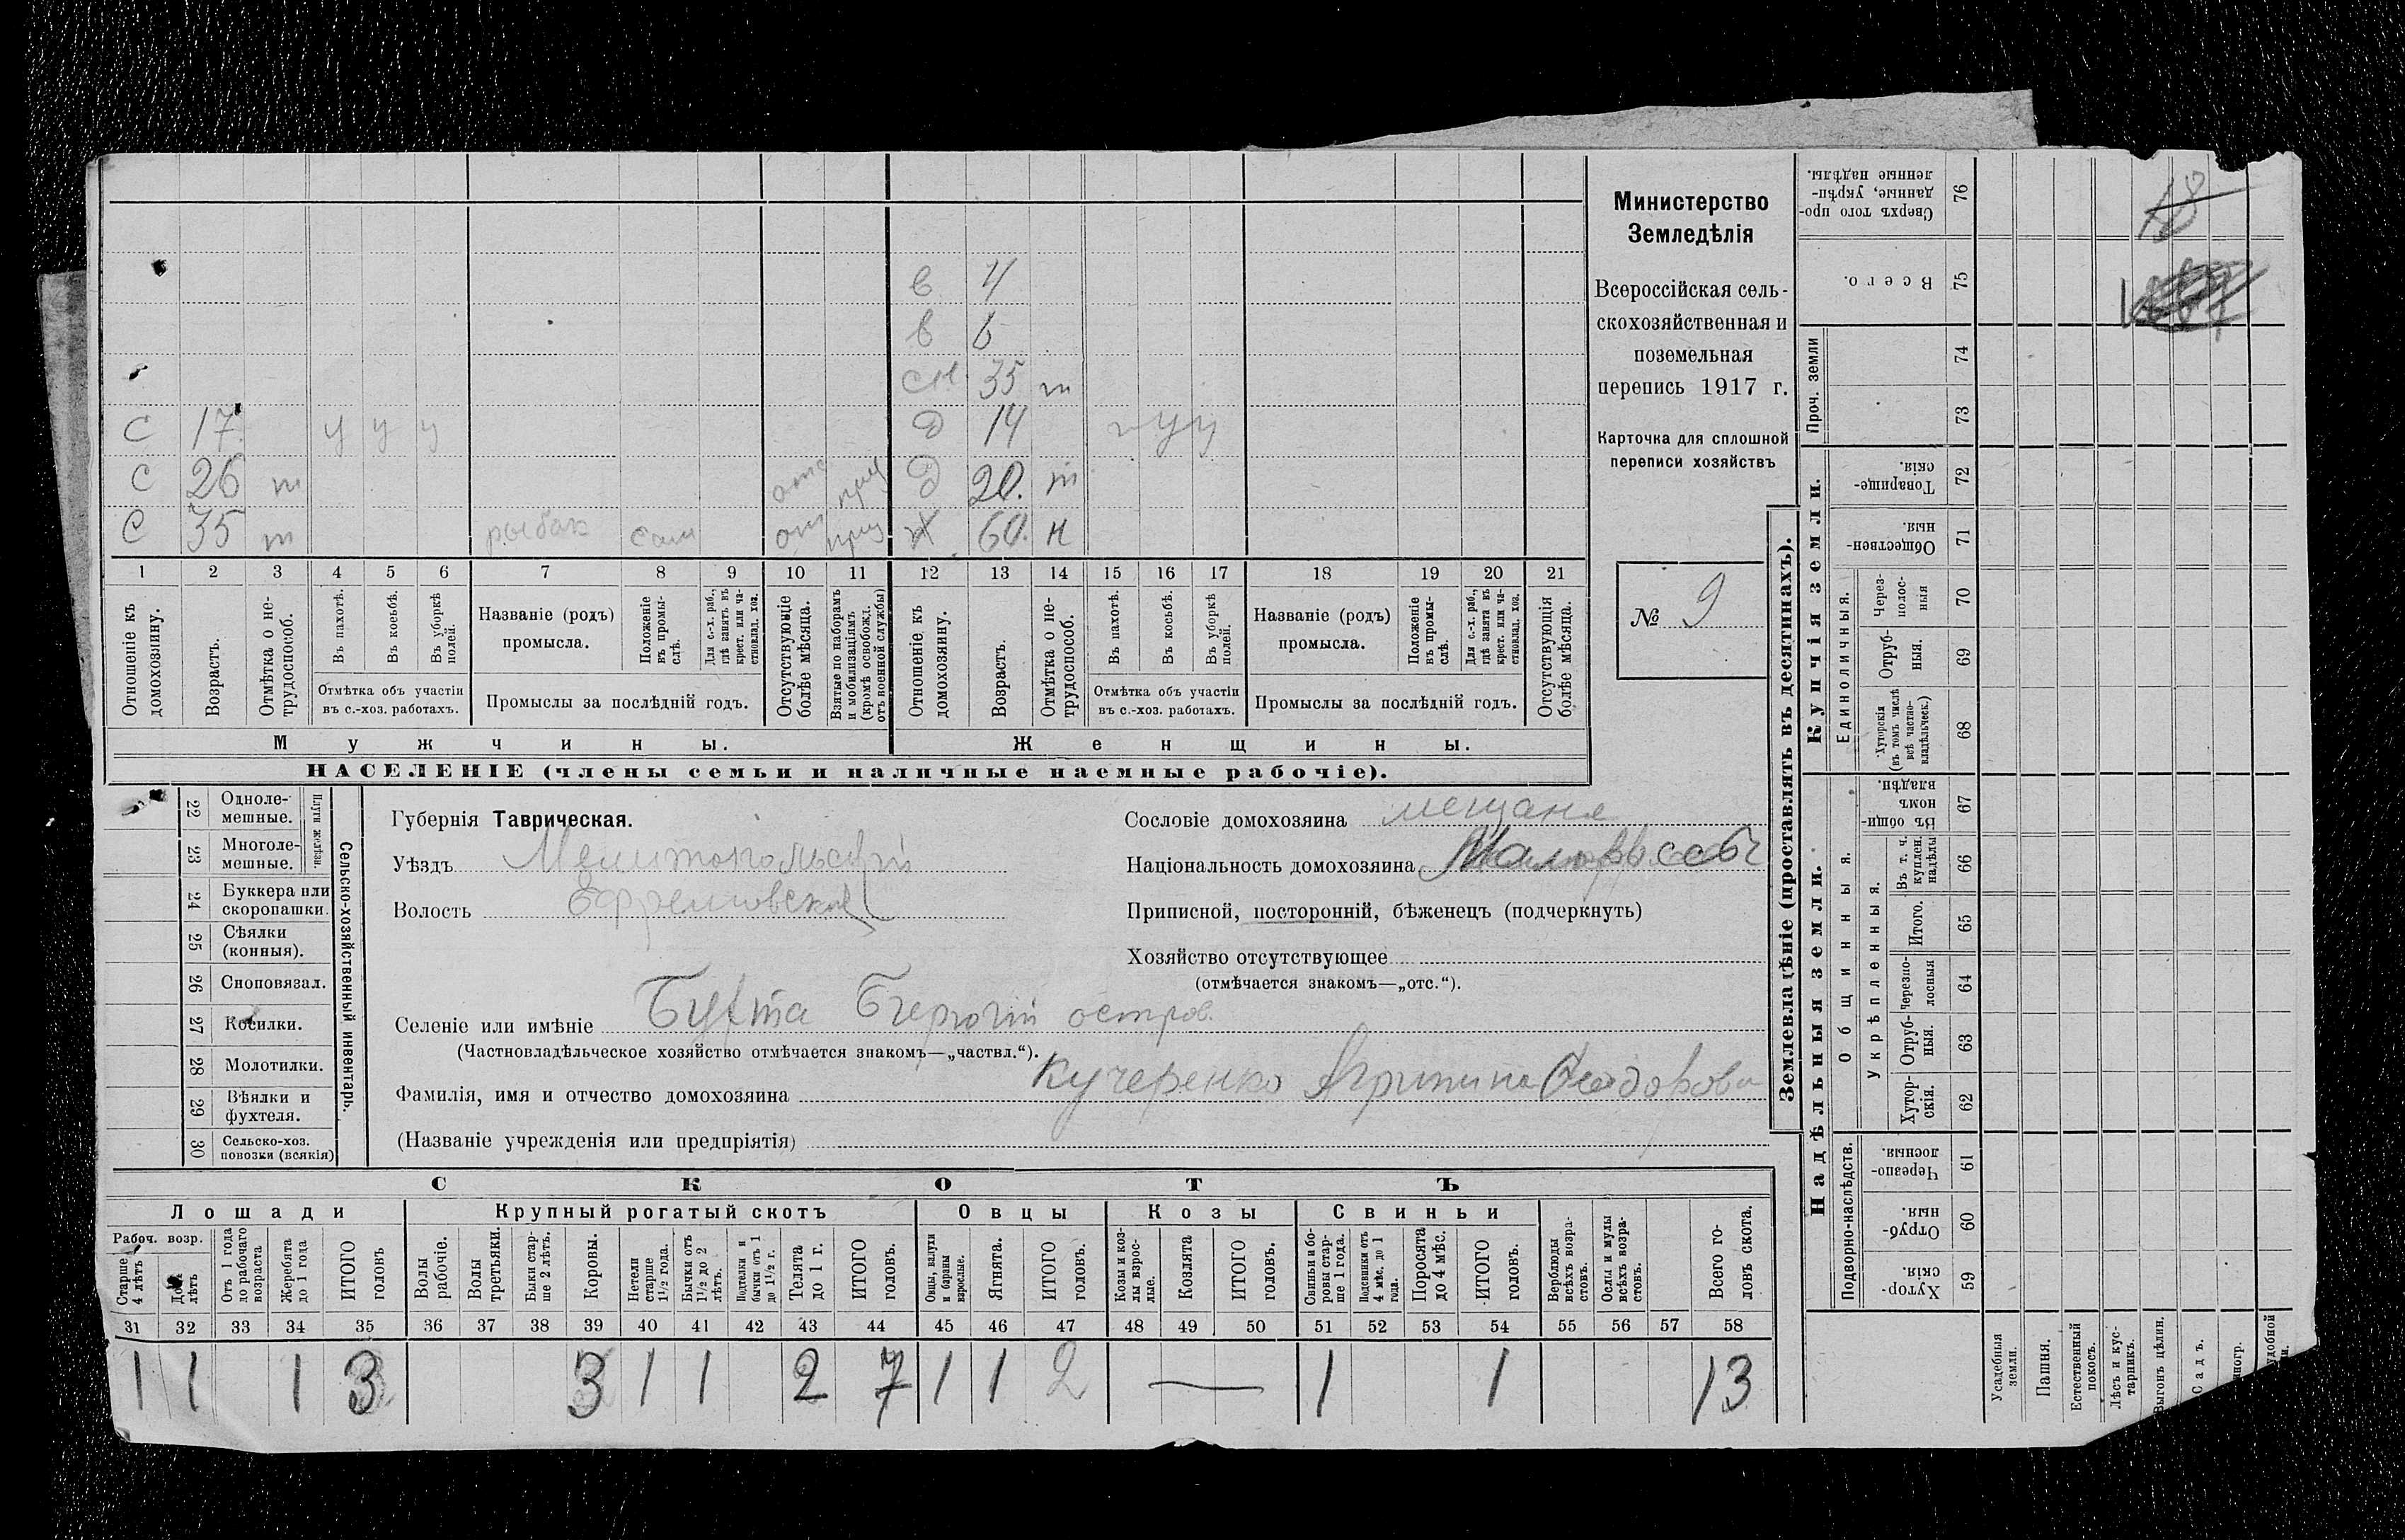 в 4
в 6
сн 35 т
С 17 у у у Д 14 у у у
С 26 т отс приз Д 20. т
С 35 т рыбак сам отс приз ж 60. н
1 2 3 4 5 6 7 8 9 10 11 12 13 14 15 16 17 18 19 20 21
Отношеніе къ домохозяину.
Возрастъ.
Отмѣтка о нетрудоспособ.
Въ пахотѣ.
Въ косьбѣ.
Въ уборкѣ полей.
Отмѣтка объ участіи въ с.-хоз. работахъ.
Названіе (родъ) промысла.
Положеніе въ промыслѣ.
Для с.-х. раб., гдѣ занятъ въ крест. или частновлад. хоз.
Промыслы за послѣдній годъ.
Отсутствующіе болѣе мѣсяца.
Взятые по наборамъ и мобилизаціямъ (кромѣ освобожд. отъ военной службы)
Отношеніе къ домохозяину.
Возрастъ.
Отмѣтка о нетрудоспособ.
Въ пахотѣ.
Въ косьбѣ.
Въ уборкѣ полей.
Отмѣтка объ участіи въ с.-хоз. работахъ.
Названіе (родъ) промысла.
Положеніе въ промыслѣ.
Для с.-х. раб., гдѣ занята въ крест. или частновлад. хоз.
Промыслы за послѣдній годъ.
Отсутствующія болѣе мѣсяца.
Мужчины. Женщины.
НАСЕЛЕНІЕ (члены семьи и наличные наемные рабочіе).
Министерство
Земледѣлія
Всероссійская сель-
скохозяйственная и
поземельная
перепись 1917 г.
Карточка для сплошной
переписи хозяйствъ
№ 9
Сельско-хозяйственный инвентарь.
Плуги желѣзн.
22 Одноле-
мешные.
23 Многоле-
мешные.
24 Буккера или
скоропашки.
25 Сѣялки
(конныя).
26 Сноповязал.
27 Косилки.
28 Молотилки.
29 Вѣялки и
фухтеля.
30 Сельско-хоз.
повозки (всякія)
Губернія Таврическая.
Уѣздъ Мелитопольскій
Волость Ефремовская
Селеніе или имѣніе Бирючій остров.
(Частновладѣльческое хозяйство отмѣчается знакомъ—„частвл.“).
Фамилія, имя и отчество домохозяина Кучеренко Агрипина Феодоровн
(Названіе учрежденія или предпріятія)
Сословіе домохозяина мещане
Національность домохозяина
Приписной, посторонній, бѣженецъ (подчеркнуть)
Хозяйство отсутствующее
(отмѣчается знакомъ—„отс.“).
СКОТЪ
Лошади Крупный рогатый скотъ Овцы Козы Свиньи
Рабоч. возр.
Старше 4 лѣтъ
До 4 лѣтъ
Отъ 1 года до рабочаго возраста
Жеребята до 1 года
ИТОГО головъ
Волы рабочіе.
Волы третьяки.
Быки старше 2 лѣтъ.
Коровы.
Нетели старше 1½ года.
Бычки отъ 1½ до 2 лѣтъ.
Подтелки и бычки отъ 1 до 1½ г.
Телята до 1 г.
ИТОГО головъ.
Овцы, валухи и бараны взрослые.
Ягнята.
ИТОГО головъ.
Козы и козлы взрослые.
Козлята
ИТОГО головъ.
Свиньи и боровы старше 1 года.
Подсвинки отъ 4 мѣс. до 1 года.
Поросята до 4 мѣс.
ИТОГО головъ.
Верблюды всѣхъ возрастовъ.
Ослы и мулы всѣхъ возрастовъ.
Всего головъ скота.
31 32 33 34 35 36 37 38 39 40 41 42 43 44 45 46 47 48 49 50 51 52 53 54 55 56 57 58
1 1 1 3 3 1 1 2 7 1 1 2 — 1 1 13
Землевладѣніе (проставлять въ десятинахъ).
Купчія земли.
Надѣльныя земли.
Сверхъ того проданные, укрѣпленные надѣлы. 76
18
Всего. 75
Проч. земли
74
73
Товарищескія. 72
Общественныя. 71
Единоличныя.
Черезполосныя 70
Отрубныя. 69
Хуторскія (въ томъ числѣ всѣ частновладѣльческ.) 68
Общинныя.
Въ общинномъ владѣн. 67
Укрѣпленныя.
Въ т. ч. куплен. надѣлы 66
Итого. 65
Черезполосныя 64
Отрубныя. 63
Хуторскія. 62
Подворно-наслѣдств.
Черезполосныя. 61
Отрубныя. 60
Хуторскія. 59
Усадебныя земли.
Пашня.
Естественный покосъ.
Лѣсъ и кустарникъ.
Выгонъ цѣлин.
Садъ.